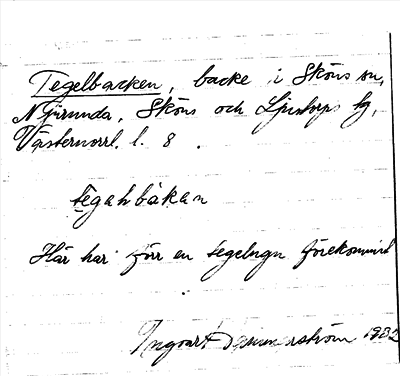 Tegelbacken, backe i Sköns sn,
Njurunda, Sköns och Ljustorps tg,
Västernorrl. l. 8.
tégahbàkan
Här har förr en tegelugn förekommit
Ingvart 1932